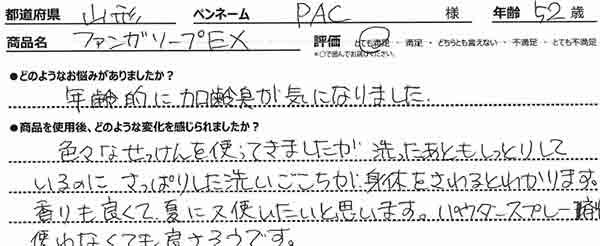 都道府県 山形 ペンネーム PAC 様 年齢 52歳
商品名 ファンガソープEX 評価 とても満足・満足・どちらとも言えない・不満足・とても不満足
*○で囲んでお選びください。
●どのようなお悩みがありましたか？
年齢的に加齢臭が気になりました。
●商品を使用後、どのような変化を感じられましたか？
色々なせっけんを使ってきましたが 洗ったあともしっとりして
いるのに さっぱりした洗いごこちが身体をさわるとわかります。
香りも良くて夏にス使いたいと思います。パウダースプレー
使わなくても良さそうです。